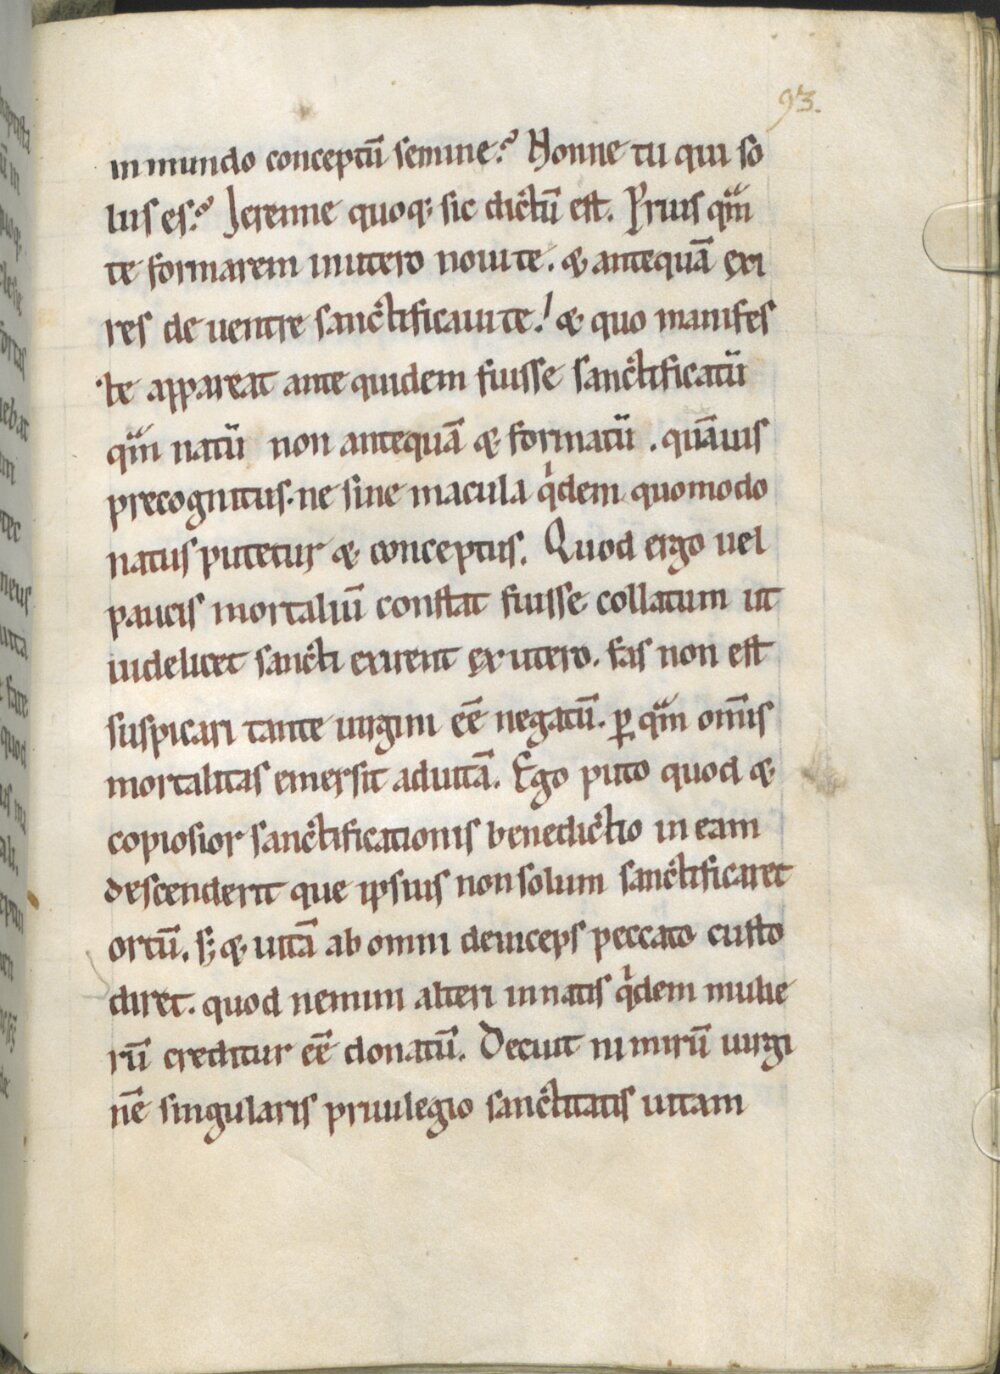 93.
inmundo conceptū semine? Nonne tu qui so
lus es? Jeremie quoq; sic dictū est. Prius qm̄
te formarem inutero noui te. & antequā exi
res de uentre sanctificaui te! & quo manifes
te appareat ante quidem fuisse sanctificatū
qm̄ natū non antequā & formatū. quāuis
precognitus. ne sine macula qͥdem quomodo
natus putetur & conceptus. Quod ergo uel
paucis mortaliū constat fuisse collatum ut
uidelicet sancti exirent ex utero. fas non est
suspicari tante uirgini eē negatū. ꝑ qm̄ omīs
mortalitas emersit aduitā. Ego puto quod &
copiosior sanctificationis benedictio in eam
descenderit que ipsius non solum sanctificaret
ortū. s; & uitā ab omni deinceps peccato custo
diret. quod nemini alteri innatis qͥdem mulie
rū creditur eē donatū. Decuit nimirū uirgi
nē singularis priuilegio sanctitatis uitam